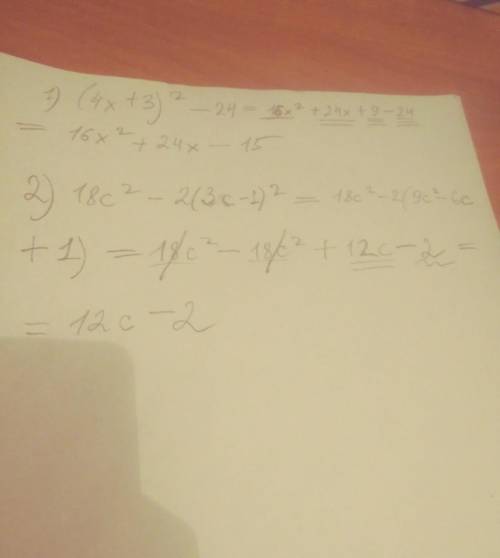 1) (4x+3)² - 24 = 16x² + 24x + 9 - 24
= 16x² + 24x - 15
2) 18c² - 2(3c-1)² = 18c² - 2(9c² - 6c
+ 1) = 18c² - 18c² + 12c - 2 =
= 12c - 2